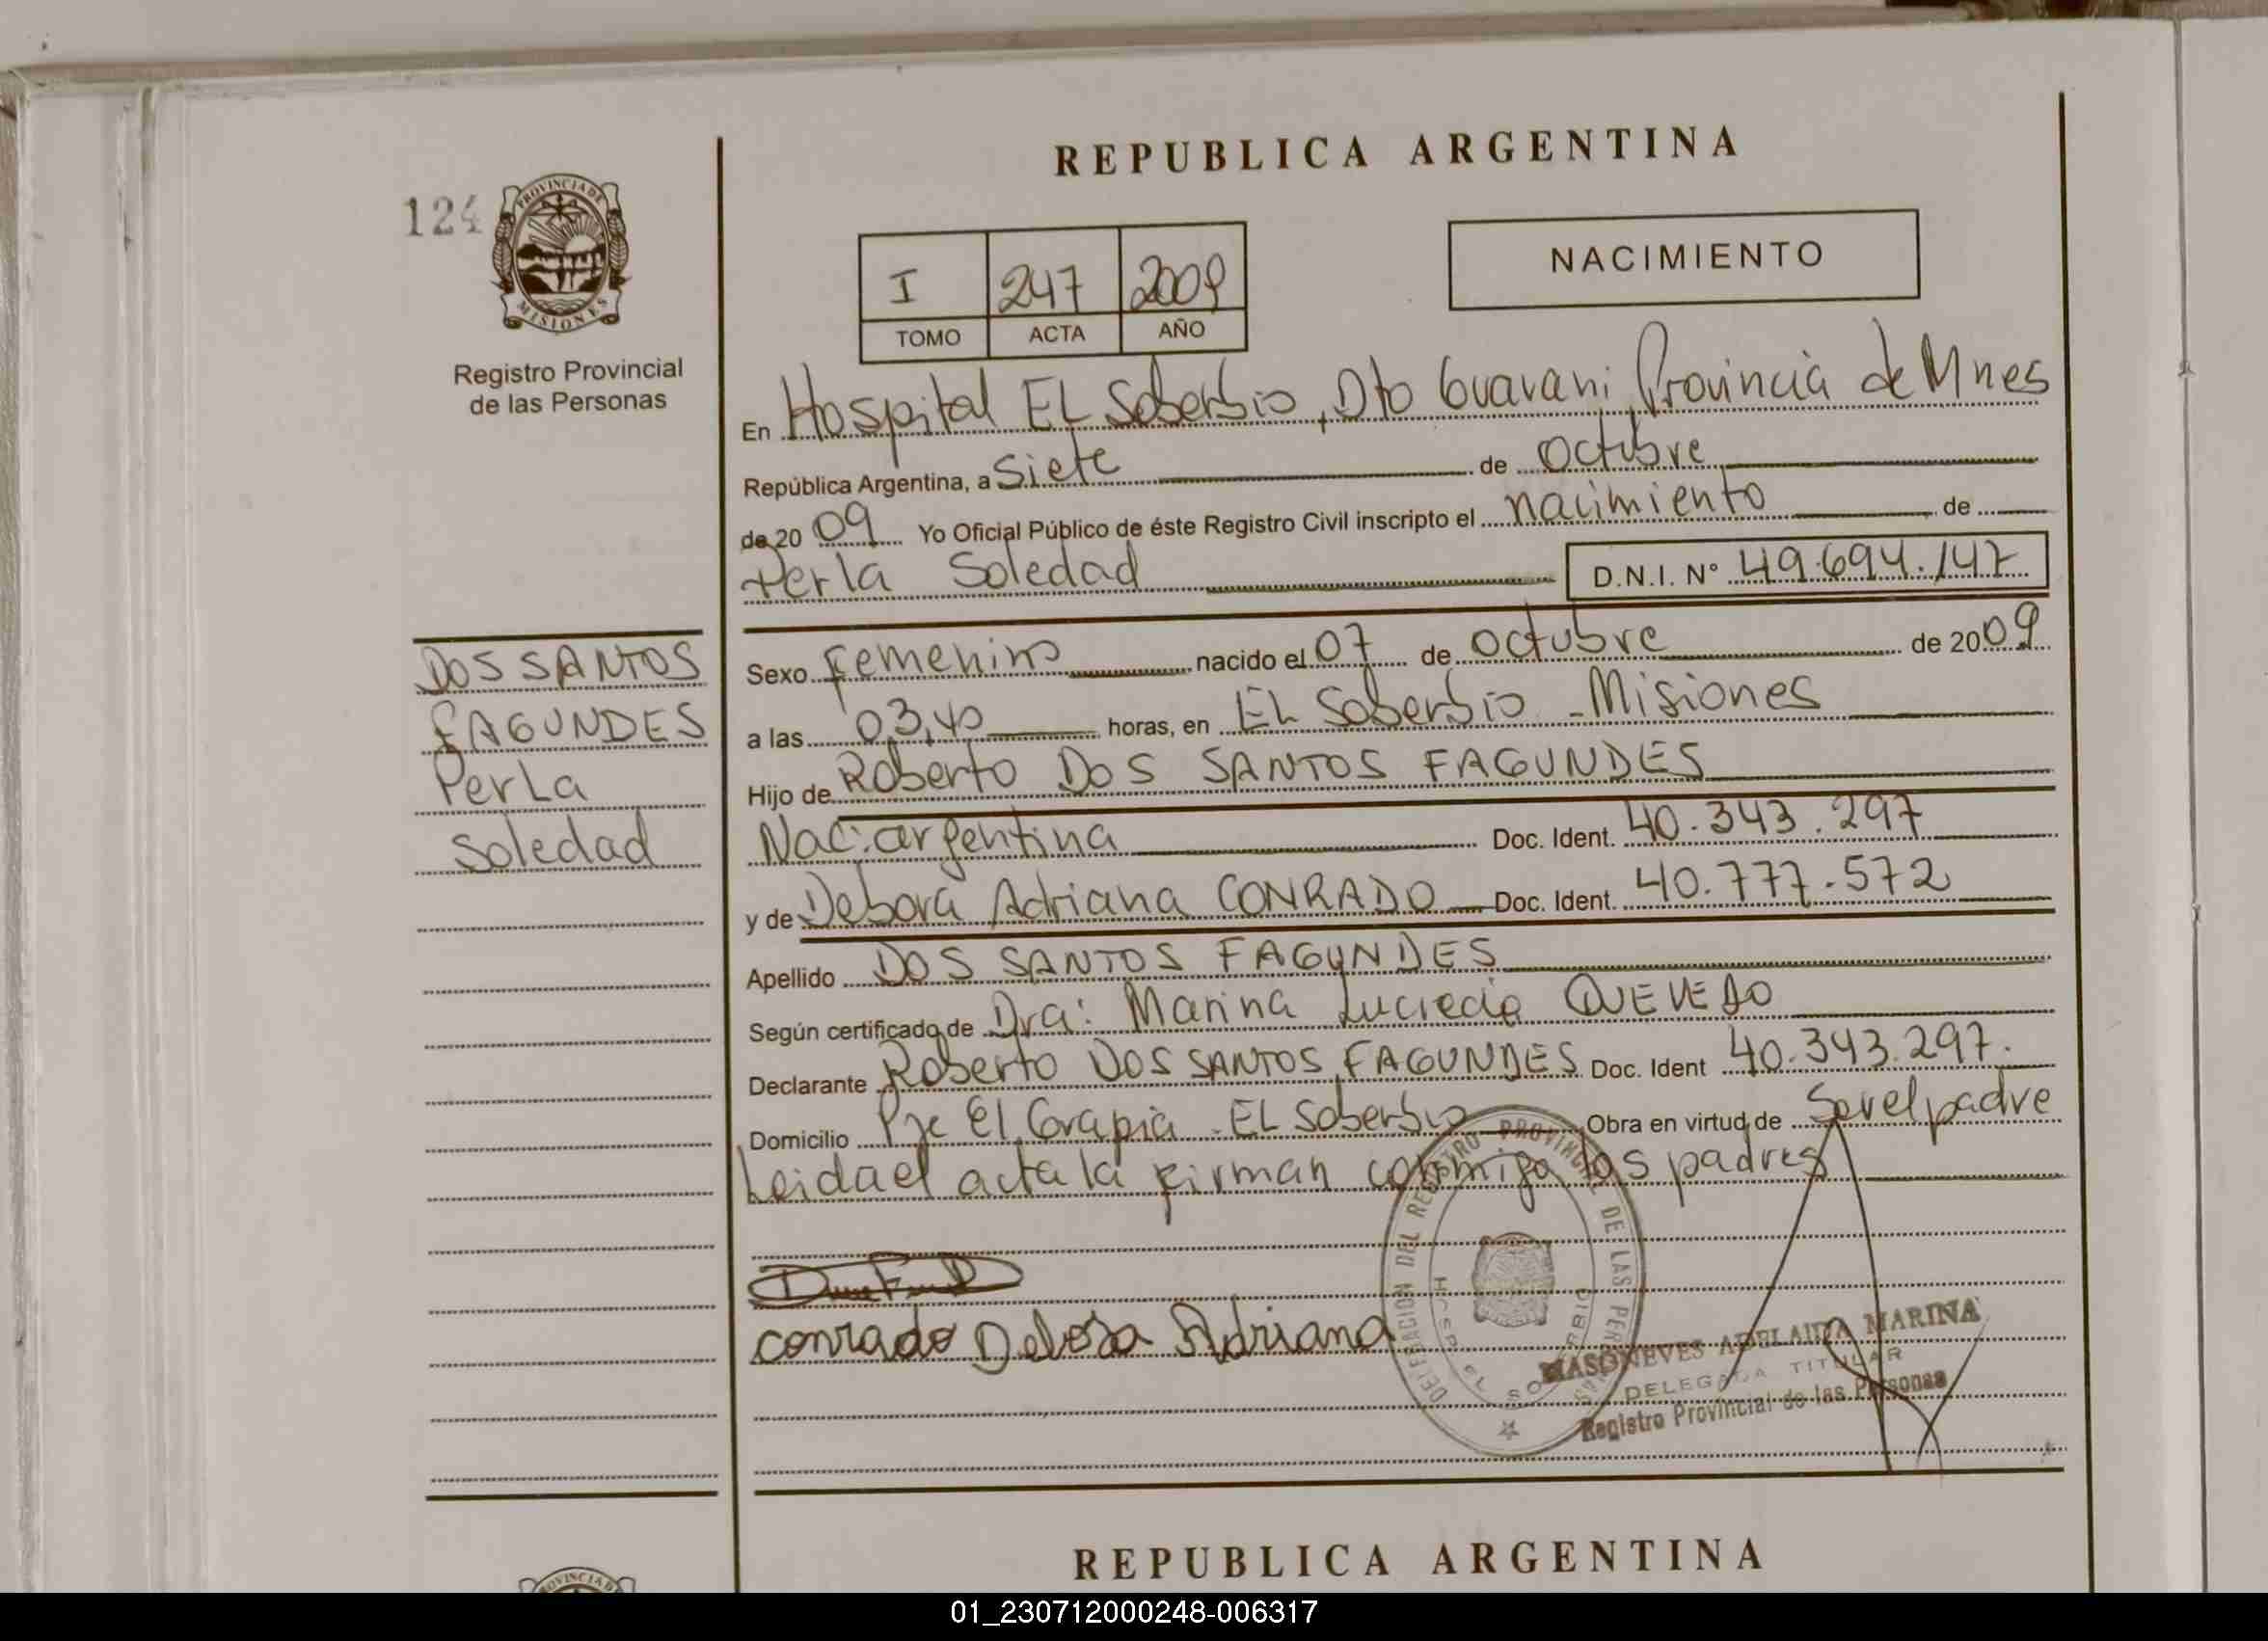 REPUBLICA ARGENTINA
124
PROVINCIA DE
MISIONES
Registro Provincial
de las Personas
I 247 2009
TOMO ACTA AÑO
NACIMIENTO
En Hospital EL Soberbio, Dto Guarani, Provincia de Mnes
República Argentina, a Siete de Octubre
de 20 09 Yo Oficial Público de éste Registro Civil inscripto el nacimiento de
Perla Soledad D.N.I. N° 49.694.147
DOS SANTOS
FAGUNDES
Perla
Soledad
Sexo Femenino nacido el 07 de Octubre de 2009
a las 03,40 horas, en EL Soberbio - Misiones
Hijo de Roberto DOS SANTOS FAGUNDES
Nac: argentina Doc. Ident. 40.343.297
y de Debora Adriana CONRADO Doc. Ident. 40.777.572
Apellido DOS SANTOS FAGUNDES
Según certificado de Dra: Marina Lucrecia QUEVEDO
Declarante Roberto DOS SANTOS FAGUNDES Doc. Ident 40.343.297.
Domicilio Pje El Grapia - EL Soberbio Obra en virtud de Ser el padre
Leida el acta la firman conmigo los padres
conrado Debora Adriana
DELEGACION DEL REGISTRO PROVINCIAL DE LAS PERSONAS
HOSP. EL SOBERBIO
MASONEVES ADELAIDA MARINA
DELEGADA TITULAR
Registro Provincial de las Personas
REPUBLICA ARGENTINA
01_230712000248-006317